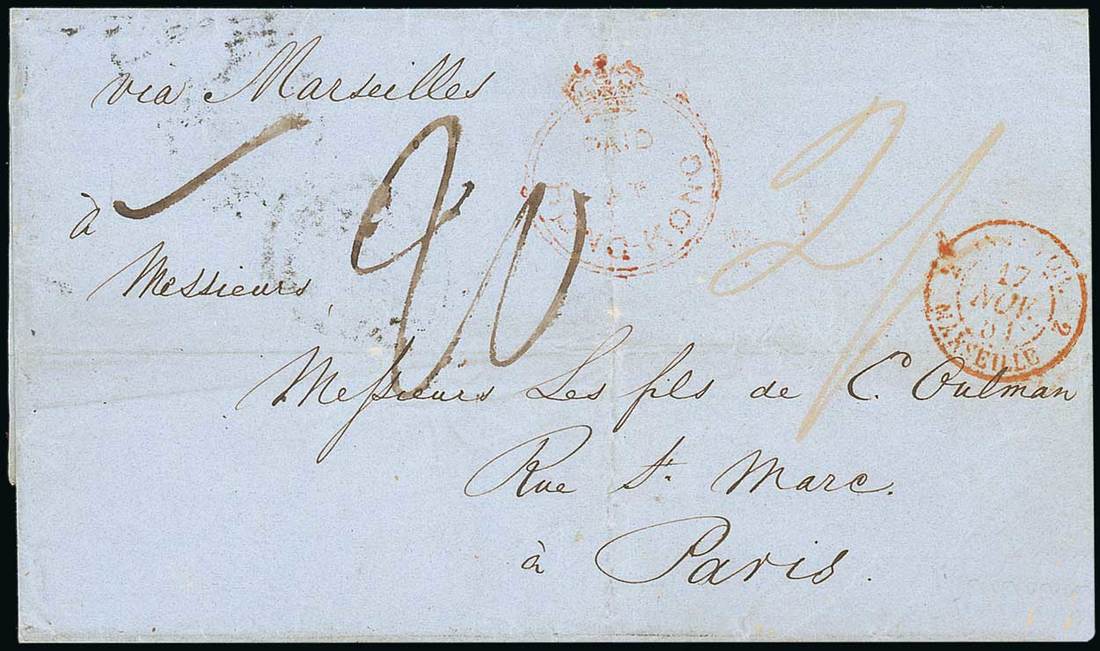 via Marseilles
PAID
AT
HONG-KONG
à
Messieurs
20
2/
17
NOV.
51
2
MARSEILLE
Messieurs Les fils de C. Oulman
Rue St. Marc.
à Paris.